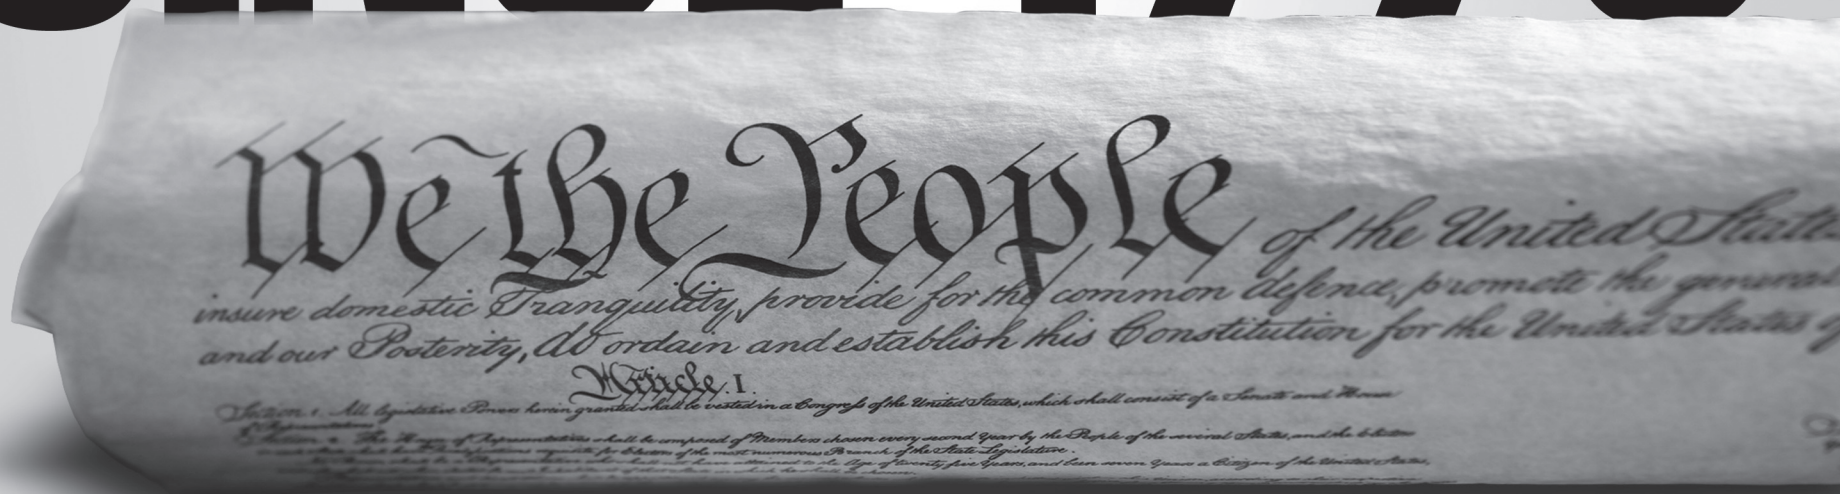 We the People of the United States
insure domestic Tranquility, provide for the common defence, promote the general
and our Posterity, do ordain and establish this Constitution for the United States of
Article. I.
Section. 1. All legislative Powers herein granted shall be vested in a Congress of the United States, which shall consist of a Senate and House
of Representatives.
Section. 2. The House of Representatives shall be composed of Members chosen every second Year by the People of the several States, and the Electors
requisite for Electors of the most numerous Branch of the State Legislature.
shall not have attained to the Age of twenty five Years, and been seven Years a Citizen of the United States,